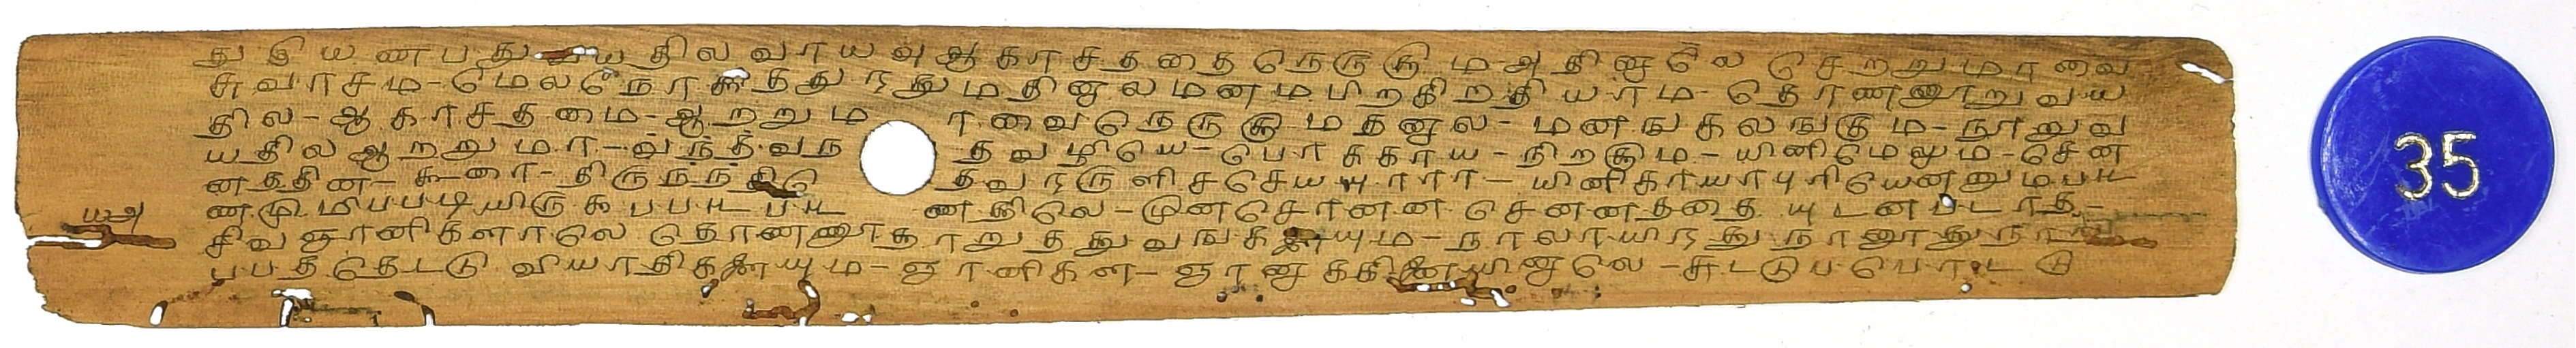 து இ ய ண ப து வய தில வாயவு ஆகாசத தை நெருகும-அதினாலெ செறறுமானவை
சுவாசம-மெலநொககிதது ரது மதினால மனமபிறகிறதியாம-தொணணூறுவய
தில-ஆகாசததமை-ஆறறும ானவைநெருகுமதனால-மனஙகலஙகும-நூறுவ
யதில ஆறறுமா-வநதவந தவழியெ-பொசுககாய-நிறகும-யினிமெலும-சென
னததின-கூரை-திருநநதி தெவரருளிசசெயயாரா-யினிகாயாபுரியெனனுமபட
ணமுமிபபடியிருககபபடடபட ணததிலெ-முனசொனன செனனததை யுடனபடாத-
யஅ
சிவஞானிகளாலெ தொணணூததாறுதத்துவஙகளையும-நாலாயிரதது நானூதது நாற
பபததெடடு வியாதிகளையும-ஞானிகள-ஞானககினியினாலெ-சுடடுபபொடடு
35